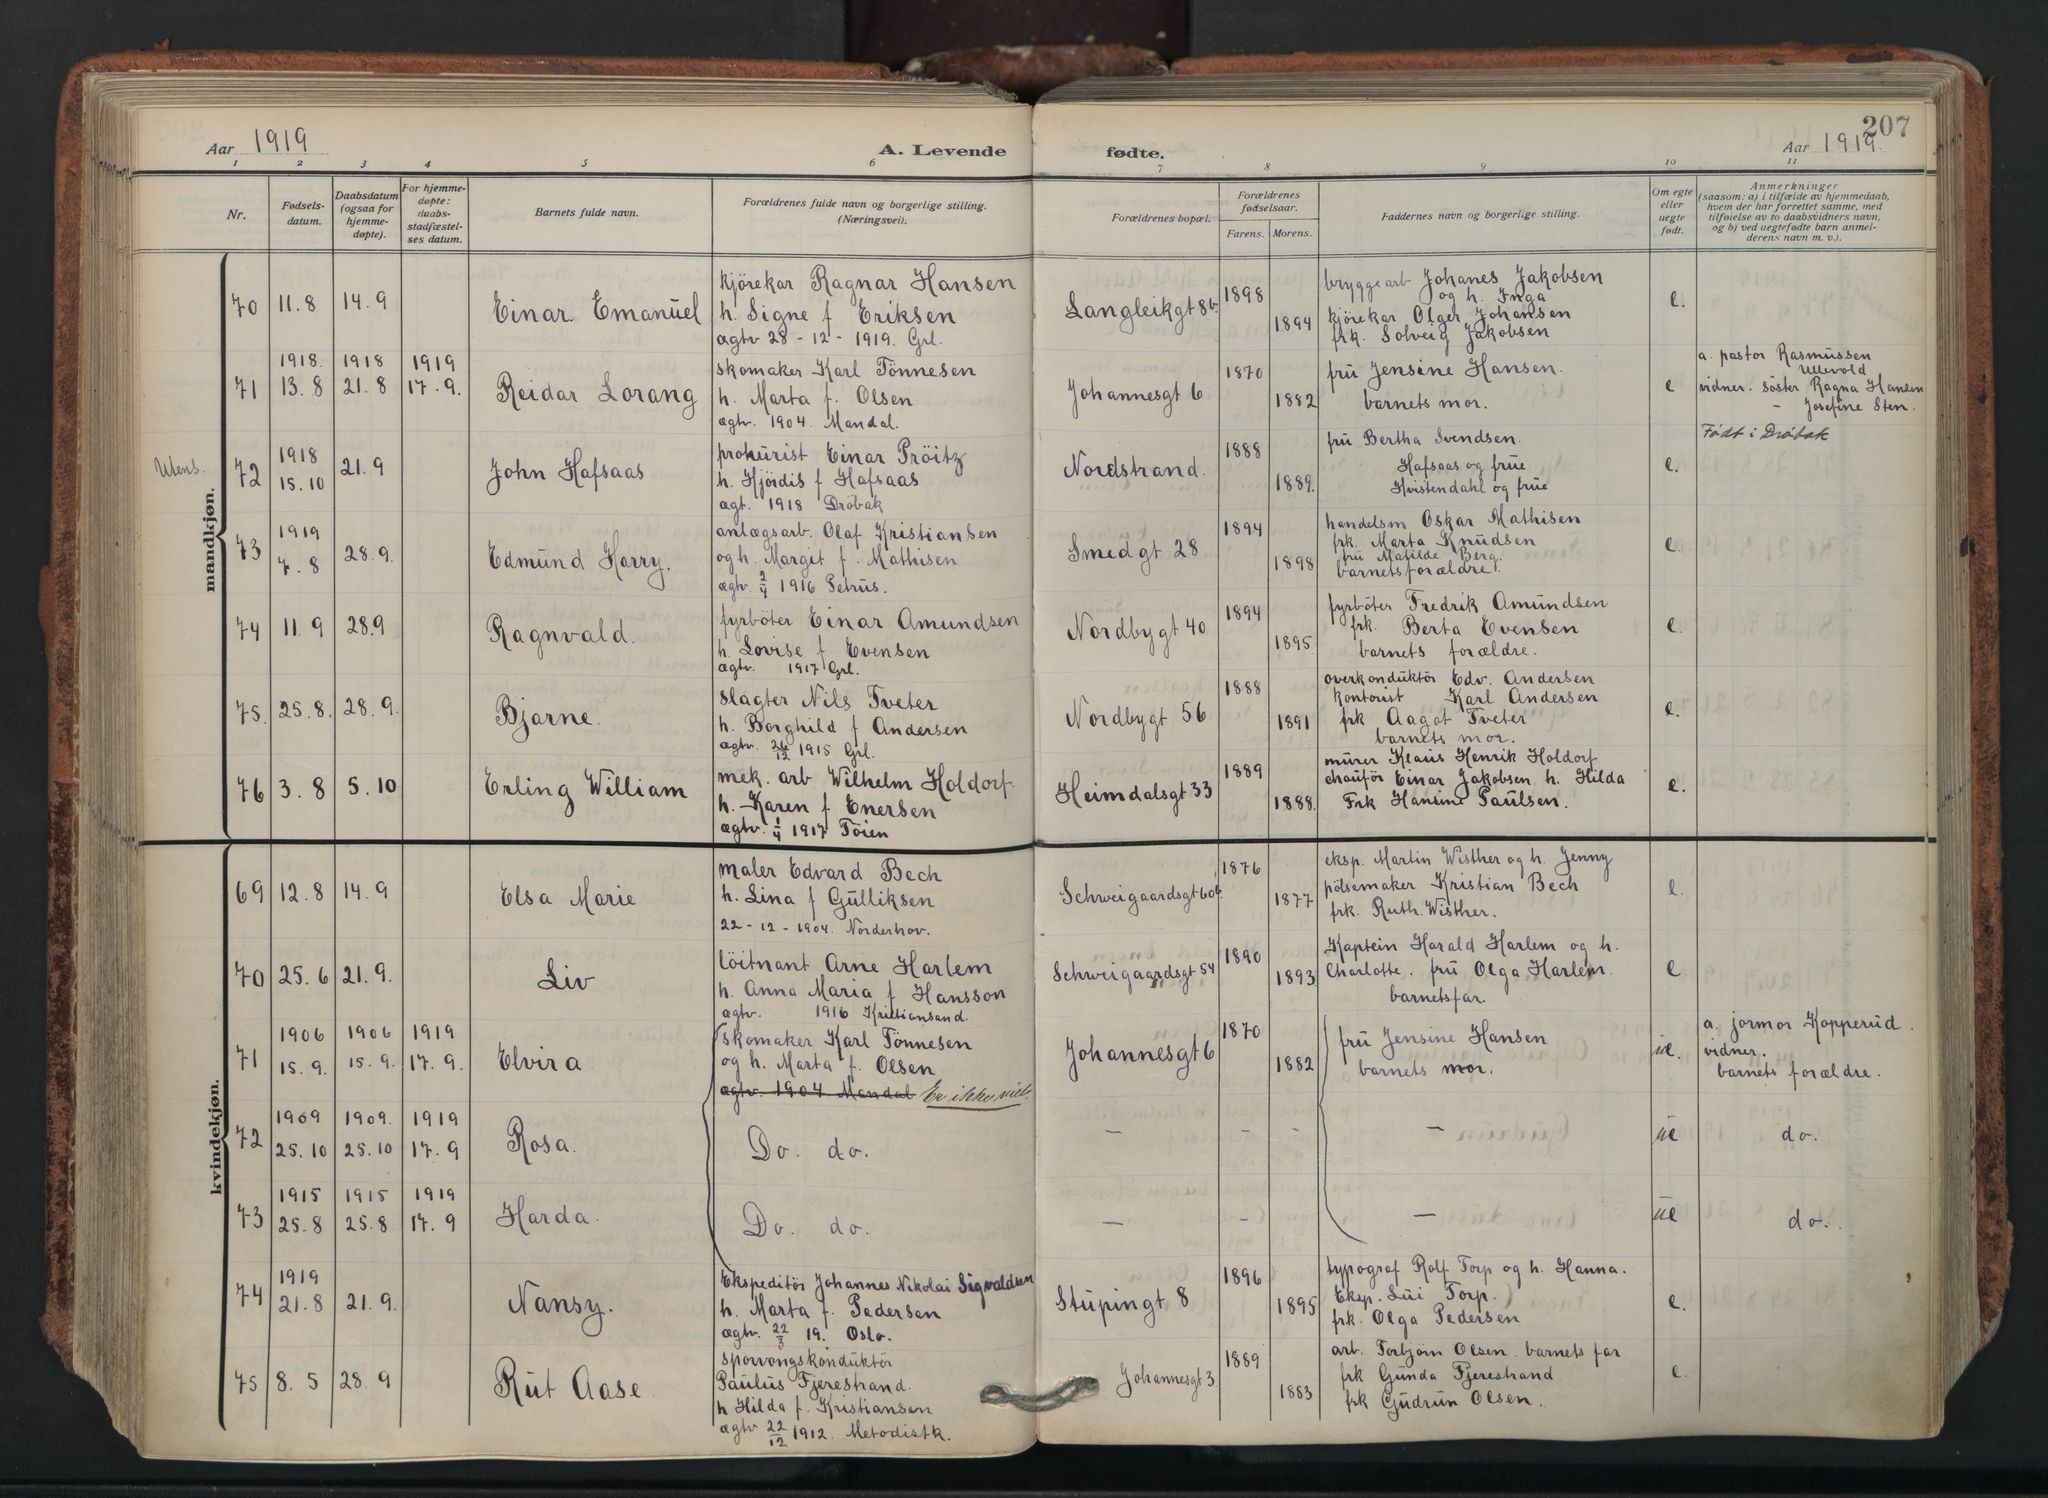 207
Aar 1919
A. Levende fødte.
Aar 1919.
1 2 3 4 5 6 7 8 9 10 11
Nr.
Fødsels-
datum.
Daabsdatum
(ogsaa for
hjemme-
døpte).
For hjemme-
døpte:
daabs-
stadfæstel-
ses datum.
Barnets fulde navn.
Forældrenes fulde navn og borgerlige stilling.
(Næringsvei).
Forældrenes bopæl.
Forældrenes
fødselsaar.
Farens. Morens.
Faddernes navn og borgerlige stilling.
Om egte
eller
uegte
født.
Anmerkninger
(saasom: a) i tilfælde av hjemmedaab,
hvem der har forrettet samme, med
tilføielse av to daabsvidners navn,
og b) ved uegtefødte barn anmel-
derens navn m. v.).
mandkjøn.
70 11.8 14.9 Einar Emanuel
kjörekar Ragnar Hansen
h. Signe f Eriksen
ægtv 28-12-1919. Grl.
Langleikgt 8b. 1898 1894
bryggearb Johanes Jakobsen
og h. Inga
kjörekar Olger Johansen
frk. Solveig Jakobsen
e.
71 1918. 13.8 1918 21.8 1919 17.9. Reidar Lorang
skomaker Karl Tönnesen
h. Marta f. Olsen
ægtv. 1904. Mandal.
Johannesgt 6 1870 1882
fru Jensine Hansen.
barnets mor.
e
a. pastor Rasmussen
Ullevold
vidner. söster Ragna Hansen
- Josefine Sten.
Utens.
72 1918 15.10 21.9 John Hafsaas
prokurist Einar Pröitz
h. Hjördis f Hafsaas
ægt. 1918 Dröbak
Nordstrand. 1888 1889.
fru Bertha Svendsen.
Hafsaas og frue
Hvistendahl og frue
e.
Födt i Dröbak
73 1919 7.8 28.9. Edmund Harry.
anlægsarb. Olaf Kristiansen
og h. Margit f. Mathisen
ægtv 2/4 1916 Petrus.
Smedgt 28 1894 1898
handelsm Oskar Mathisen
frk. Marta Knudsen
fru Matilde Berg.
barnets forældre.
e.
74 11.9 28.9 Ragnvald.
fyrböter Einar Amundsen
h. Lovise f Evensen
ægtv. 1917 Grl.
Nordbygt 40 1894 1895.
fyrböter Fredrik Amundsen
frk. Berta Evensen
barnets forældre.
e.
75. 25.8. 28.9. Bjarne.
slagter Nils Tveter
h. Borghild f Andersen
ægtv. 26/12 1915 Grl.
Nordbygt 56 1888 1891
overkonduktör Edv. Andersen
kontorist Karl Andersen
frk Aagot Tveter
barnets mor.
e.
76 3.8 5.10 Erling William
mek. arb Wilhelm Holdorf
h. Karen f Enersen
ægtv. 1/4 1917 Töien
Heimdalsgt 33 1889 1888.
murer Klaus Henrik Holdorf
chauför Einar Jakobsen h. Hilda
Frk Hansine Paulsen.
e.
kvindekjøn.
69 12.8 14.9 Elsa Marie
maler Edvard Bech
h. Lina f Gulliksen
22-12-1904. Norderhov.
Schweigaardsgt 60b. 1876 1877
eksp. Martin Wisther og h. Jenny
pölsemaker Kristian Bech
frk. Ruth. Wisther.
e.
70 25.6 21.9. Liv
löitnant Arne Harlem
h. Anna Maria f Hansson
ægtv. 1916 Kristiansand.
Schweigaardsgt 54 1890 1893
Kaptein Harald Harlem og h.
Charlotte. fru Olga Harlem.
barnets far.
e
71 1906 15.9. 1906 15.9. 1919 17.9. Elvira
skomaker Karl Tönnesen
og h. Marta f. Olsen
ægtv. 1904 Mandal Er ikke viet.
Johannesgt 6 1870 1882
fru Jensine Hansen
barnets mor.
ue.
a. jormor Kopperud.
vidner.
barnets forældre.
72 1909 25.10 1909. 25.10 1919 17.9 Rosa. Do. do. - - - - ue do.
73 1915 25.8 1915 25.8 1919 17.9 Harda. Do. do. - - - - ue do.
74 1919 21.8 21.9. Nansy.
Ekspeditör Johannes Nikolai Sigvaldsen
h. Marta f. Pedersen
ægtv. 22/3 19. Oslo.
Stupingt 8 1896 1895
typograf Rolf Torp og h. Hanna.
Eksp. Lui Torp.
frk. Olga Pedersen
e.
75 8.5 28.9 Rut Aase.
sporvongskonduktör
Paulus Fjerestrand.
h Hilda f. Kristiansen
ægtv 22/12 1912. Metodistk.
Johannesgt 3. 1889 1883
arb. Torbjörn Olsen. barnets far
frk Gunda Fjerestrand
frk Gudrun Olsen.
e.